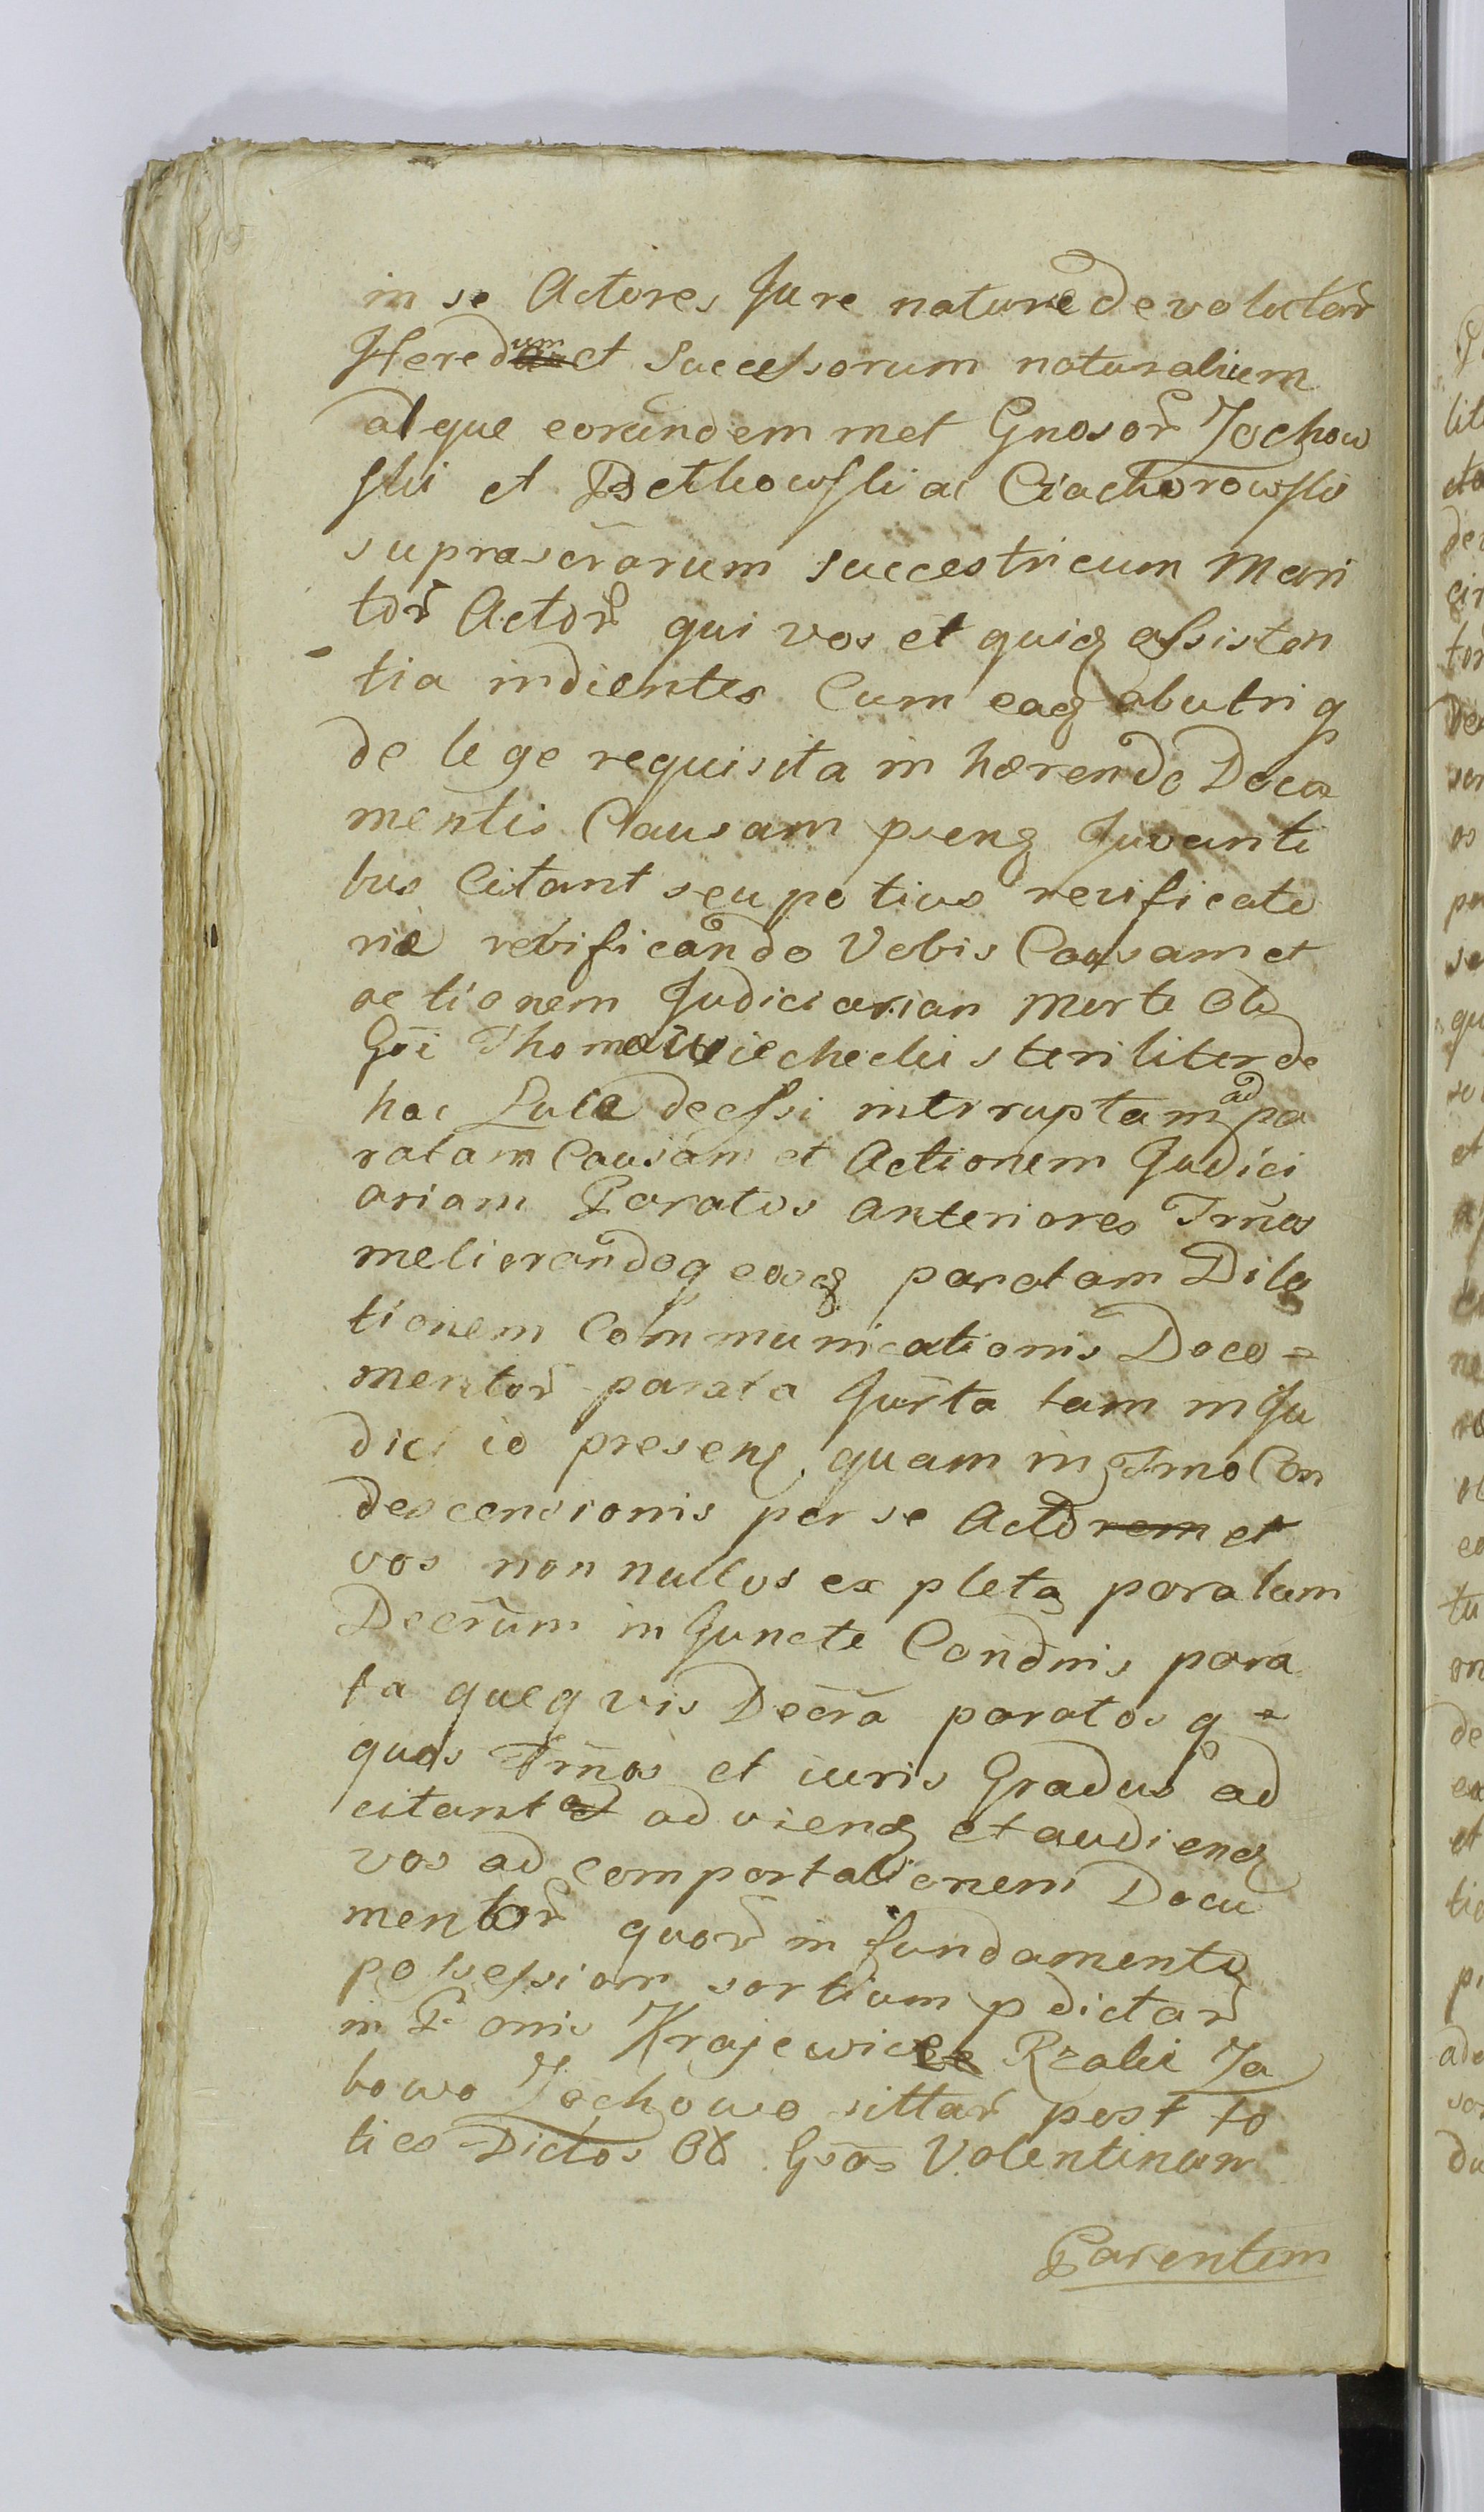 in se Actores Jure nature devolutar
Heredum et Successorum naturalium
atque eorundem met Gnosor Jochow
ski et Betkowski ac Ciachorowski
suprascrarum succestricum Mari
tor Actor qui vos et quiq assisten
tia indientes Cum eaq abutriq
de lege requisita in hærendo Docu
mentis Causam pseng Juvanti
bus Citant seu potius reificato
rie reificando Vobis Causam et
actionem Judiciarian Morte Ol
Goi Thomæ Wiechecki steriliter de
hac Luce decessi interruptam ad pa
ratam Causam et Actionem Judici
ariam Paratos Anteriores Trnos
meliorandoq eosq paratam Dila
tionem Communicationis Docu=
mentor parata Jurta tam in Ju
dicio presenq quam in Tmo Con
descensionis per se Actorem et
vos non nullos expleta paratum
Decrum in Juncte Condnis para
ta queqvis Decra paratos q=
quos Trnos et iuris Gradus ad
citant ad videnq et audienq
vos ad comportationem Docu
mentor quor in fundamento
possession sortium pdictar
in Bonis Krajewice Rzaki Ja
bowo Jochowo sittar post to
ties Dictos Ol Gsos Valentinum
Parentem